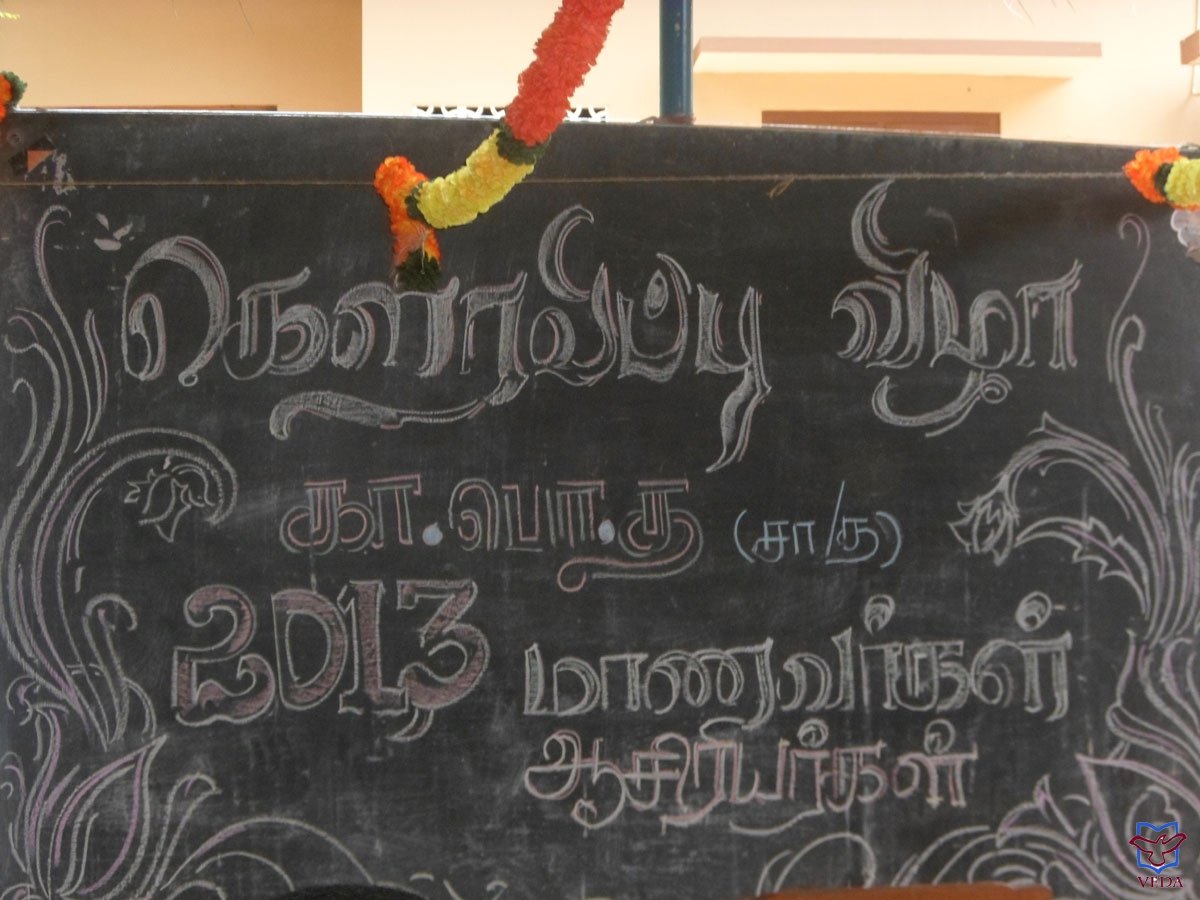 கௌரவிப்பு விழா
கா.பொ.த (சா/த)
2013 மாணவர்கள்
ஆசிரியர்கள்
VEDA